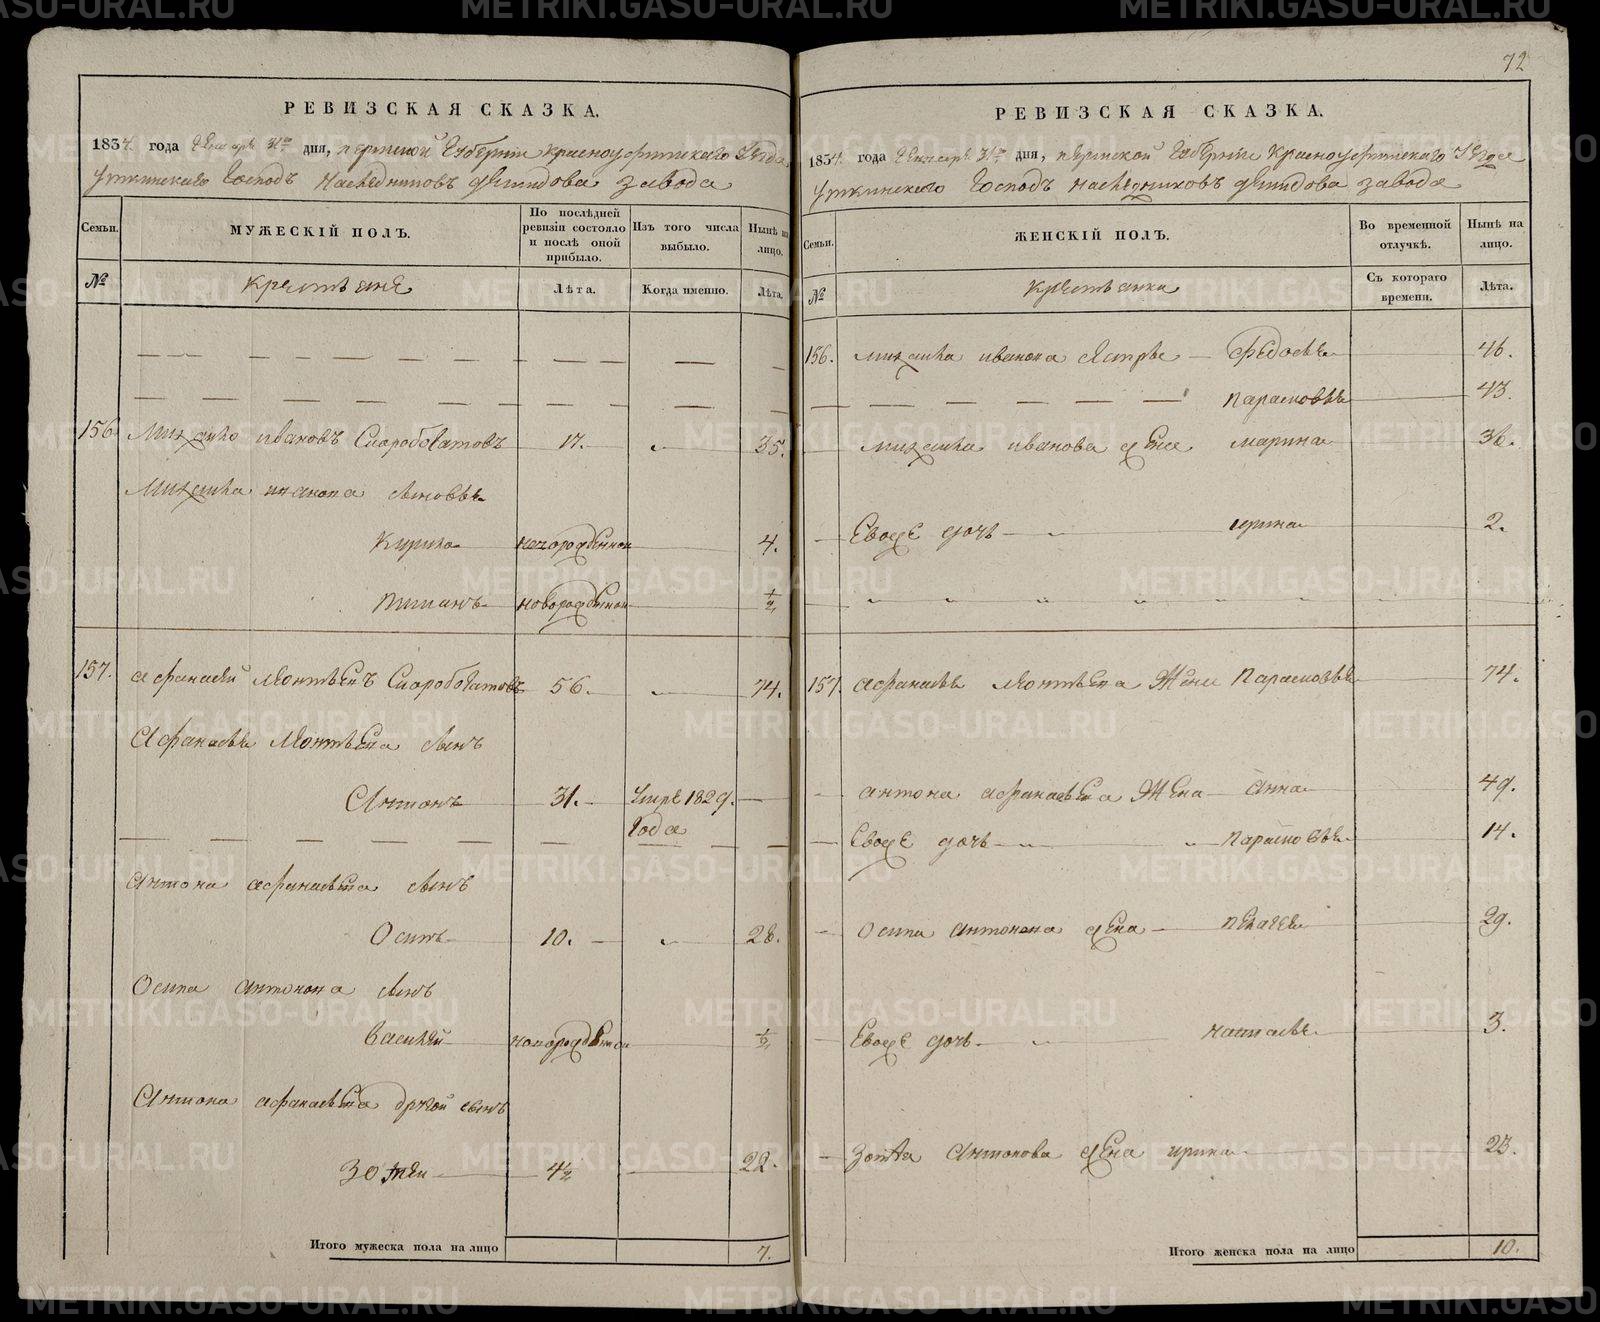 72
РЕВИЗСКАЯ СКАЗКА.
1834. года Декабря 31го дня, пермской Губернiи Красноуфимского Уезда
Уткинского Господъ наследниковъ Демидова завода
Семьи.
МУЖЕСКІЙ ПОЛЪ.
По послѣдней ревизіи состояло и послѣ оной прибыло.
Изъ того числа выбыло.
Нынѣ на лицо.
№
крестьяне
Лѣта.
Когда именно.
Лѣта.
156 Михайло ивановъ Скоробогатовъ 17. 35.
Михаила иванова сыновья
Кирило новорожденной 4.
новорожденной 1/2
157. афанасей Леонтьевъ Скоробогатовъ 56. 74.
Афанасья Леонтьева сынъ
Антонъ 31. Умре 1829.
Года
Антона афанасьева сынъ
Осипъ 10. 28.
Осипа антонова сынъ
василей новорожденной 1/2
Антона афанасьева другой сынъ
Зотей 4 1/2 22.
Итого мужеска пола на лицо 7.
РЕВИЗСКАЯ СКАЗКА.
1834. года Декабря 31го дня, пермской Губернiи Красноуфимского Уезда
Уткинского Господъ наследниковъ Демидова завода
Семьи.
ЖЕНСКІЙ ПОЛЪ.
Во временной отлучкѣ.
Нынѣ на лицо.
№
крестьянки
Съ котораго времени.
Лѣта.
156. михаила иванова сестры Федосья 46.
парасковья 43.
михаила иванова жена марина 36.
Евоже дочь ирина 2.
157. афанасья Леонтьева Жена Парасковья 74.
антона афанасьева Жена Анна 49.
Евоже дочь парасковья 14.
Осипа Антонова жена пелагея 29.
Евоже дочь настасья 3.
Зотея Антонова жена ирина 23.
Итого женска пола на лицо 10.
METRIKI.GASO-URAL.RU